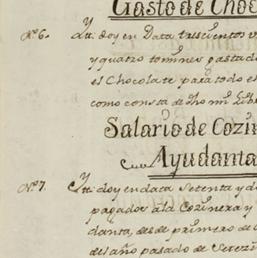 Gasto de Choc
Nº 6. Yt. doy en Data trescientos
y quatro tomines gastado
el Chocolate para todo el
como consta de dho mi Libr
Salario de Cozin
Ayudanta
Nº 7. Yt. doy en data Setenta y d
pagados ala Cozinera y
danta, desde primero de
del año pasado de Setezi